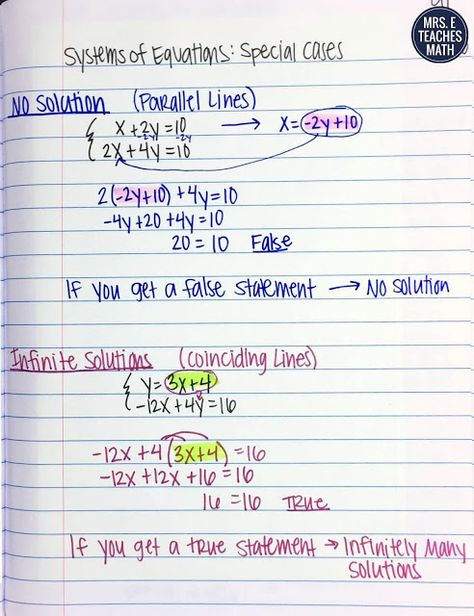 MRS. E
TEACHES
MATH
Systems of Equations: Special Cases
No Solution (Parallel Lines)
{ x+2y=10 → x=-2y+10
-2y -2y
{ 2x+4y=10
2(-2y+10)+4y=10
-4y+20+4y=10
20=10 False
If you get a false statement → No solution
Infinite Solutions (coinciding Lines)
{ y=3x+4
{ -12x+4y=16
-12x+4(3x+4)=16
-12x+12x+16=16
16=16 True
If you get a true statement → Infinitely Many
solutions